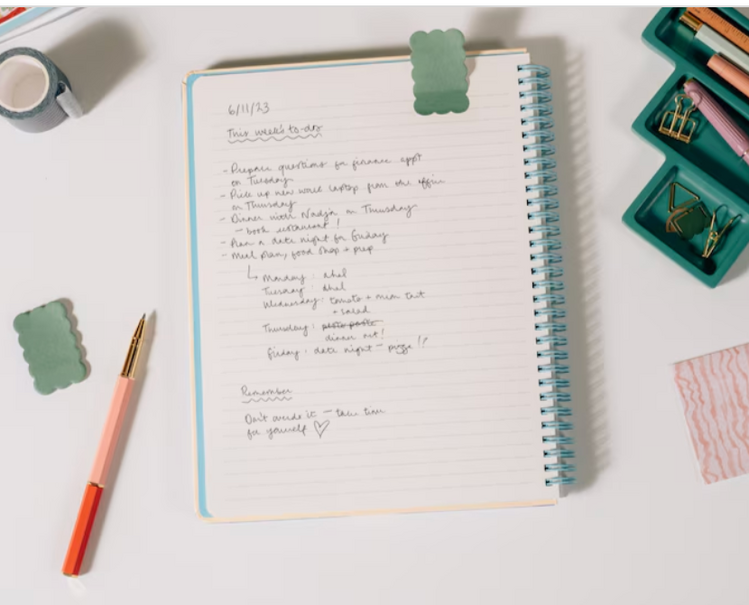 6/11/23
This week's to-dos
- Prepare questions for finance appt
on Tuesday
- Pick up new work laptop from the office
on Thursday
- Dinner with Nadja on Thursday
- book restaurant!
- Plan a date night for Friday
- Meal plan, food shop + prep
Monday : dhal
Tuesday : dhal
Wednesday : tomato + tart
+ salad
Thursday : pesto pasta
dinner out!
Friday : date night - pizza!?
Remember
Don't overdo it - take time
for yourself ♡